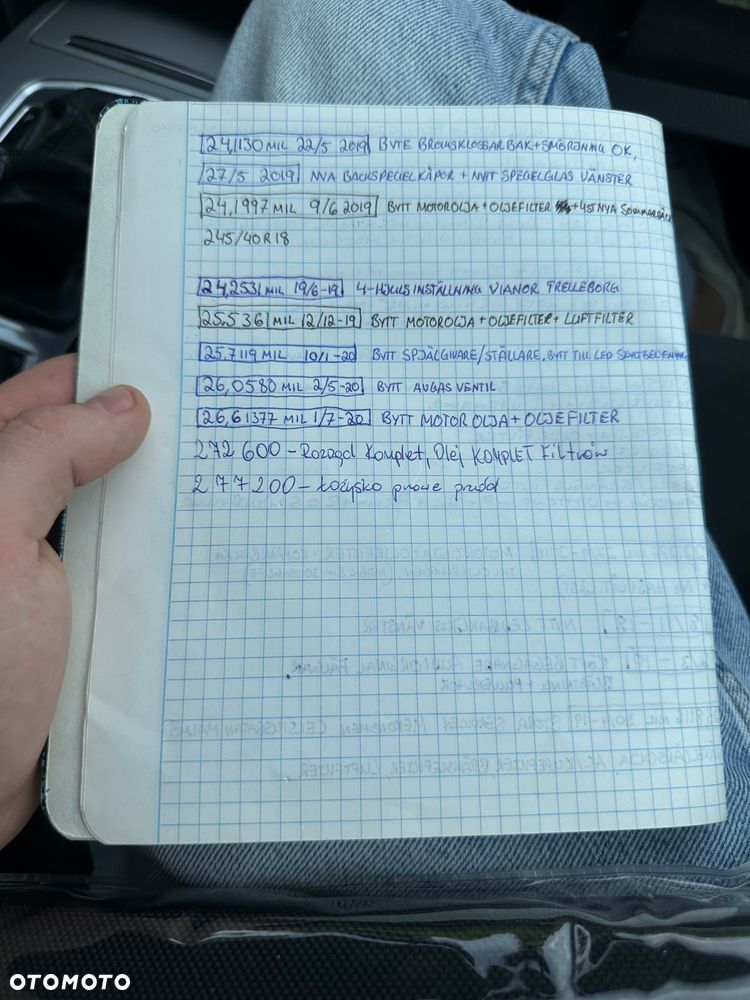 24,1130 MIL 22/5 2019 BYTE BROMSKLOSSAR BAK + SMÖRJNING OK,
27/5 2019 NYA BACKSPEGELKÅPOR + NYTT SPEGELGLAS VÄNSTER
24,1997 MIL 9/6 2019 BYTT MOTOROLJA + OLJEFILTER + 4ST NYA SOMMARDÄCK
245/40 R18
24,2531 MIL 19/6-19 4-HJULSINSTÄLLNING VIANOR TRELLEBORG
25,5361 MIL 12/12-19 BYTT MOTOROLJA + OLJEFILTER + LUFTFILTER
25,7119 MIL 10/1-20 BYTT SPJÄLGIVARE/STÄLLARE, BYTT TILL LED
26,0580 MIL 2/5-20 BYTT AVGAS VENTIL
26,61377 MIL 1/7-20 BYTT MOTOR OLJA + OLJEFILTER
272 600 - Rozrząd Komplet, Olej KOMPLET Filtrów
277200 - Łożysko prawe przód
OTOMOTO